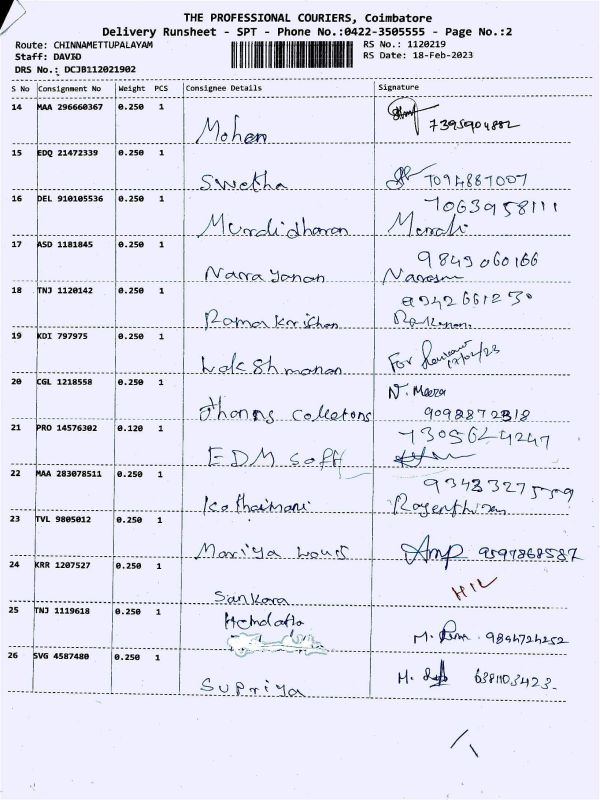 THE PROFESSIONAL COURIERS, Coimbatore
Delivery Runsheet - SPT - Phone No.:0422-3505555 - Page No.:2
Route: CHINNAMETTUPALAYAM RS No.: 1120219
Staff: DAVID RS Date: 18-Feb-2023
DRS No.: DCJB112021902
S No Consignment No Weight PCS Consignee Details Signature
14 MAA 296660367 0.250 1
Mohan 7395904882
15 EDQ 21472339 0.250 1
Swetha 7094887007
16 DEL 910105536 0.250 1 7063958111
Murdidharan Murali
17 ASD 1181845 0.250 1 9843060166
Narayanan
18 TNJ 1120142 0.250 1
Ramakrishan
19 KDI 797975 0.250 1 For
Lakshmanan 17/02/23
20 CGL 1218558 0.250 1 N. Meera
Colletons 9098872818
21 PRO 14576302 0.120 1 7305644247
EDM Soft
22 MAA 283078511 0.250 1
Kothaimani
23 TVL 9805012 0.250 1
Mariya 9597868587
24 KRR 1207527 0.250 1
Sankara
25 TNJ 1119618 0.250 1
M. 9894724252
26 SVG 4587480 0.250 1
Supriya M. 6381103423